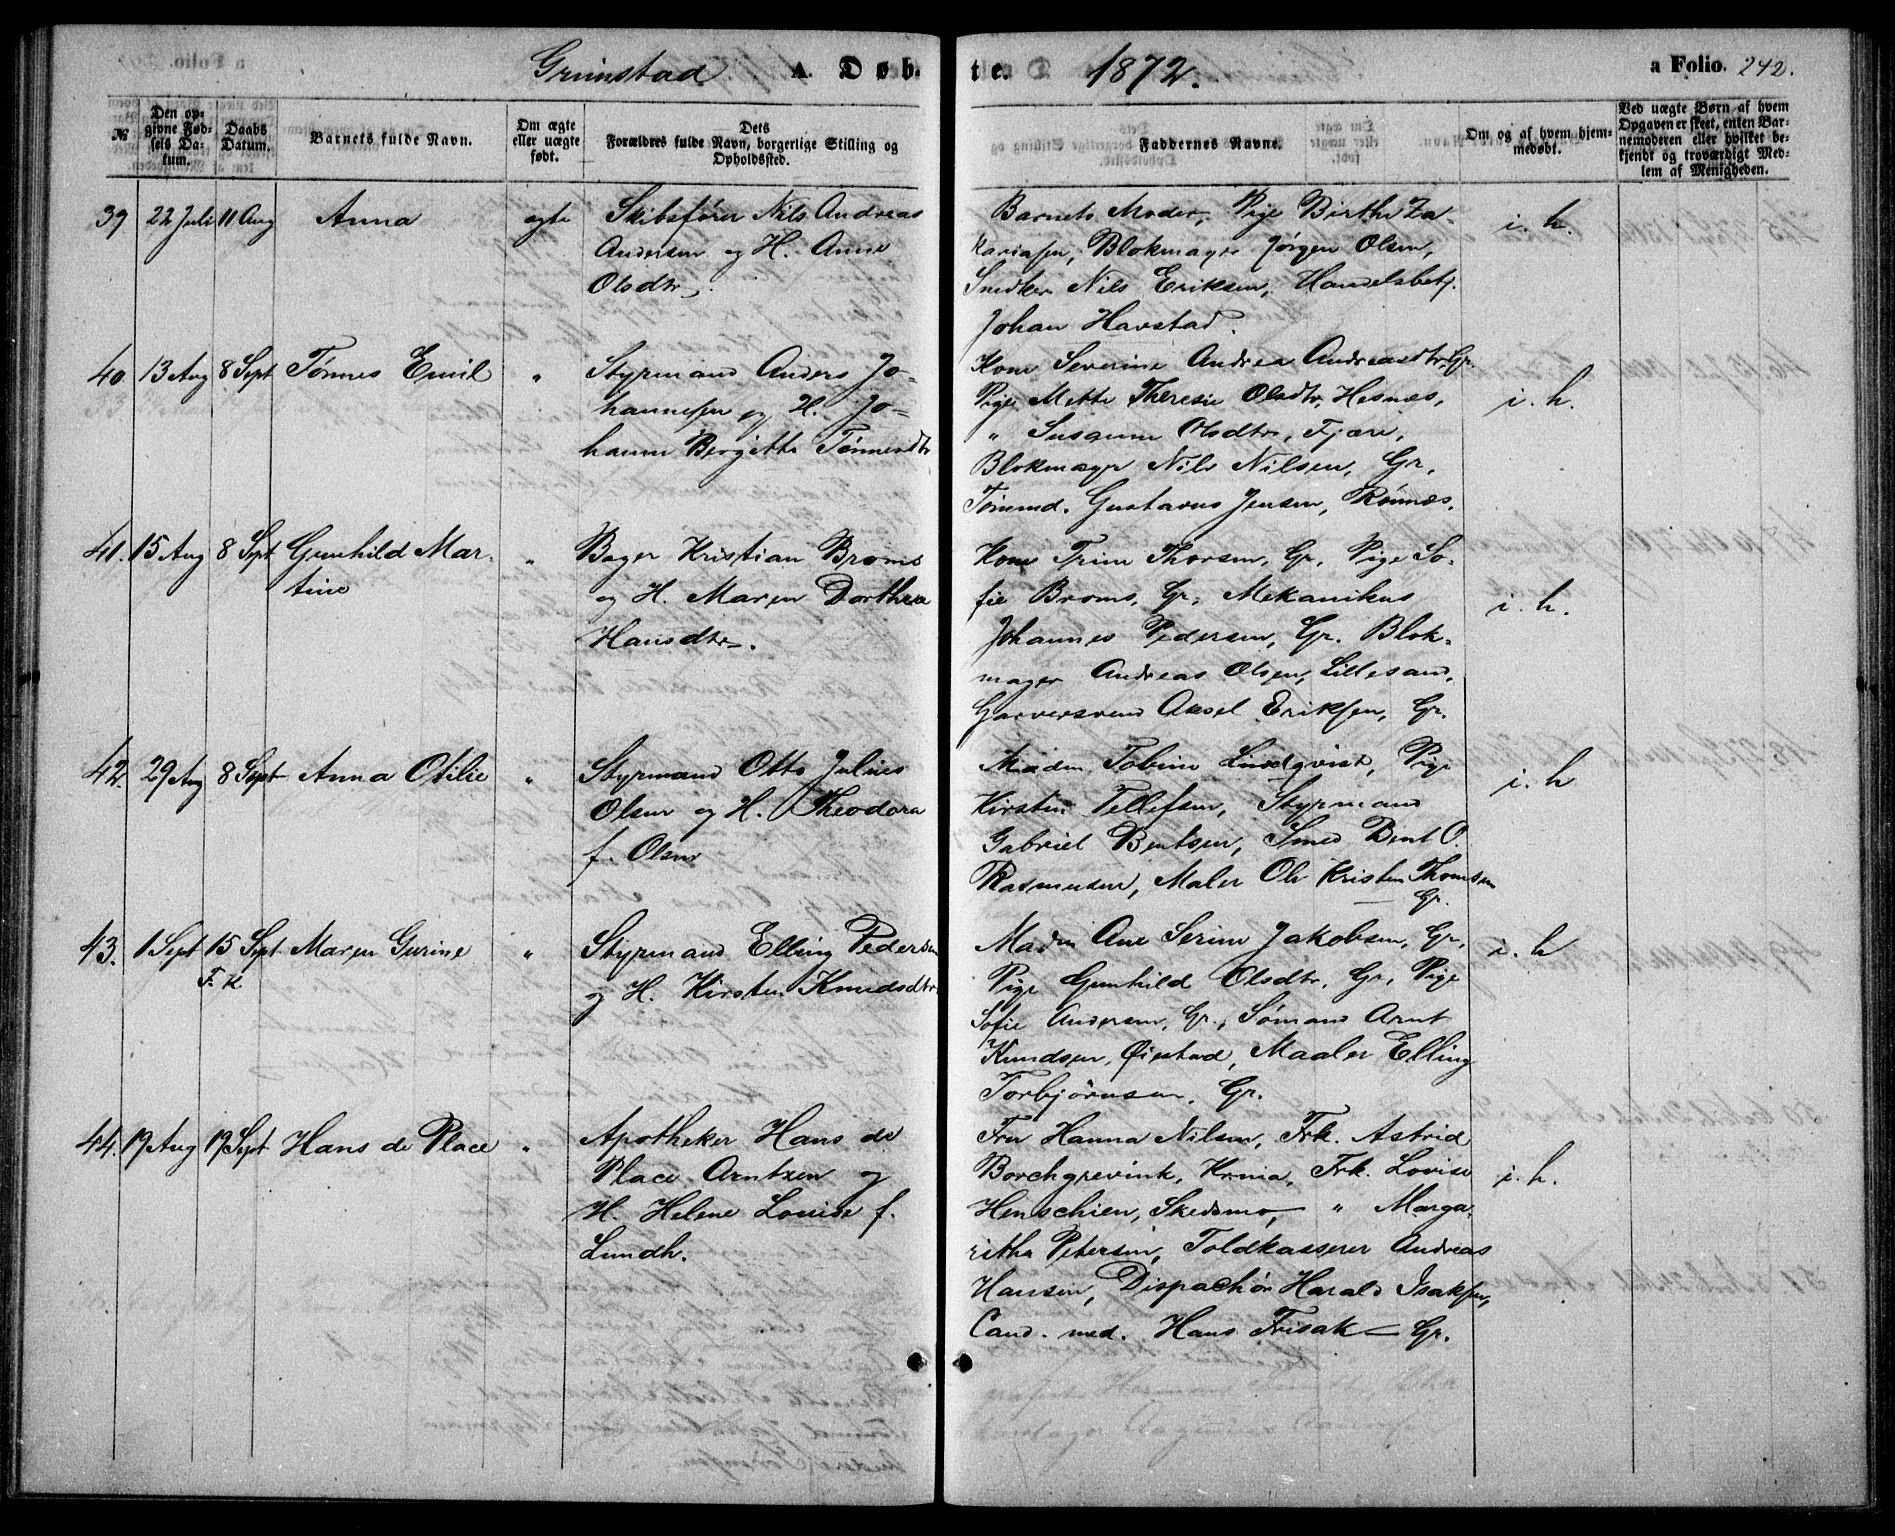 Grimstad A. Døb- te. 1872. a Folio. 242.
№
Den op-
givne Fød-
sels Da-
tum.
Daabs
Datum.
Barnets fulde Navn.
Om ægte
eller uægte
født.
Dets
Forældres fulde Navn, borgerlige Stilling og
Opholdssted.
Faddernes Navne.
Om og af hvem hjem-
medøbt.
Ved uægte Børn af hvem
Opgaven er skeet, enten Bar-
nemoderen eller hvilket be-
kjendt og troværdigt Med-
lem af Menigheden.
39 22 Juli 11 Aug Anna egte
Skibsfører Nils Andreas
Andersen og H. Anne
Olsdtr.
Barnets Moder, Pige Birthe Za-
kariasen, Blokmager Jørgen Olsen,
Snedker Nils Eriksen, Handelsbetj.
Johan Havstad.
i. h.
40. 13 Aug 8 Sept Tønnes Emil "
Styrmand Anders Jo-
hannesen og H. Jo-
hanne Bergitte Tønnesdtr
Kone Severine Andrea Andreasdtr, Gr.
Pige Mette Theresie Olsdtr, Hesnæs,
" Susanne Olsdtr, Fjære,
Blokmager Nils Nilsen, Gr,
Tømmd. Gustavus Jensen, Rønnæs.
i. h.
41. 15 Aug 8 Sept Gunhild Mar-
tine "
Bager Kristian Broms
og H. Maren Dorthea
Hansdtr.
Kone Trine Thorsen, Gr, Pige So-
fie Broms, Gr, Mekanikus
Johannes Pedersen, Gr. Blok-
mager Andreas Olsen, Lillesand,
Garversvend Aksel Eriksen, Gr.
i. h.
42. 29 Aug 8 Sept Anna Otilie "
Styrmand Otto Julius
Olsen og H. Theodora
f. Olsen
Madm. Tobine Lindqvist, Pige
Kirsten Tellefsen, Styrmand
Gabriel Bentsen, Smed Bent O.
Rasmussen, Maler Ole Kristen Thomsen
— Gr.
i. h
43. 1 Sept 15 Sept Maren Gurine "
F. K
Styrmand Elling Pedersen
og H. Kirsten Knudsdtr
Madm Ane Serine Jakobsen, Gr,
Pige Gunhild Olsdtr, Gr, Pige
Sofie Andersen, Gr., Sømand Arnt
Knudsen, Øiestad, Maaler Elling
Torbjørnsen, Gr.
i. h
44. 19 Aug 19 Sept Hans de Place "
Apotheker Hans de
Place Arntzen og
H. Helene Louise f.
Lundh.
Fru Hanna Nilsen, Frk. Astrid
Borchgrevink, Krnia, Frk. Lovise
Henschien, Skedsmo, " Marga-
rithe Petersen, Toldkasserer Andreas
Hansen, Dispachør Harald Isaksen,
Cand. med. Hans Frisak — Gr.
i. h.